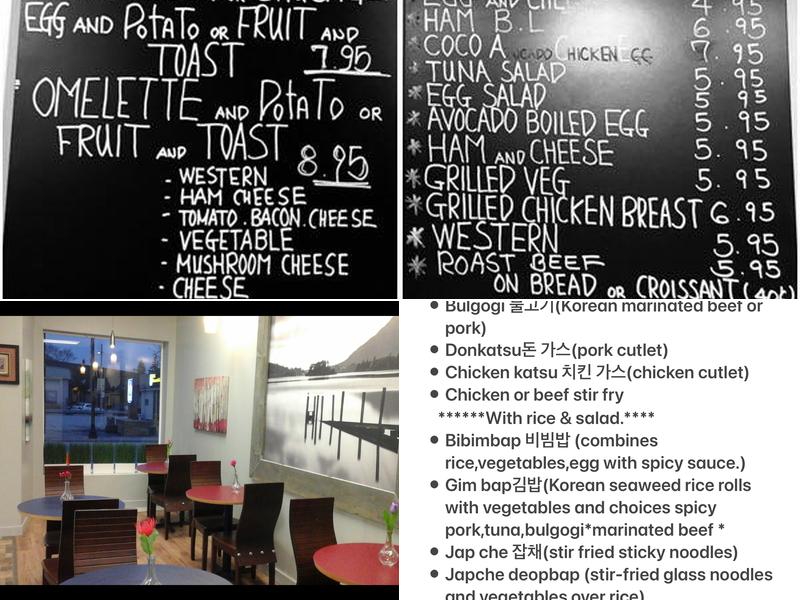 EGG AND POTATO OR FRUIT AND
TOAST 7.95
OMELETTE AND POTATO OR
FRUIT AND TOAST 8.95
- WESTERN
- HAM CHEESE
- TOMATO.BACON.CHEESE
- VEGETABLE
- MUSHROOM CHEESE
- CHEESE
EGG AND CHEE 4.95
HAM B.L 6.95
* COCO AVOCADO CHICKEN EGG 7.95
* TUNA SALAD 5.95
* EGG SALAD 5.95
* AVOCADO BOILED EGG 5.95
* HAM AND CHEESE 5.95
* GRILLED VEG 5.95
* GRILLED CHICKEN BREAST 6.95
* WESTERN 5.95
* ROAST BEEF 5.95
ON BREAD OR CROISSANT
• Bulgogi 불고기(Korean marinated beef or
pork)
• Donkatsu돈 가스(pork cutlet)
• Chicken katsu 치킨 가스(chicken cutlet)
• Chicken or beef stir fry
******With rice & salad.****
• Bibimbap 비빔밥 (combines
rice,vegetables,egg with spicy sauce.)
• Gim bap김밥(Korean seaweed rice rolls
with vegetables and choices spicy
pork,tuna,bulgogi*marinated beef *
• Jap che 잡채(stir fried sticky noodles)
• Japche deopbap (stir-fried glass noodles
and vegetables over rice)